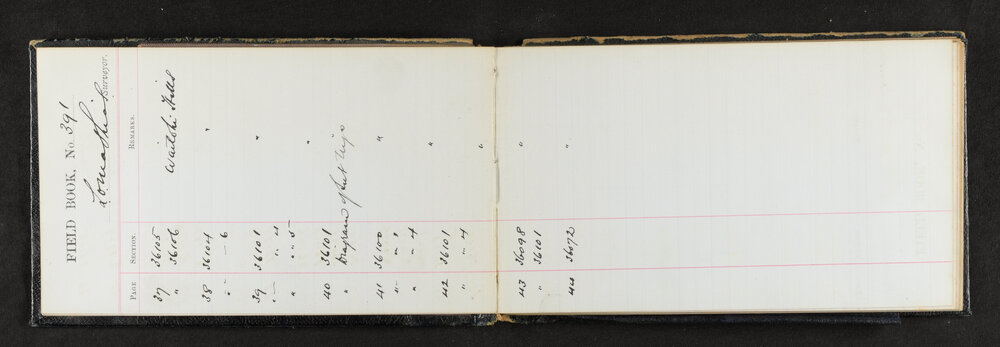 FIELD BOOK, No. 391
Surveyor.
PAGE SECTION. REMARKS.
37 36105 Waitohi Hills
" 36106
38 36104 "
" – 6
39 36101 "
" – " 4
" " " 5 "
40 36101
" Diagram of
41 36100 "
" – " 1
" – " 4
42 36101 "
" – " 4 "
43 36098 "
" 36101
44 36072 "